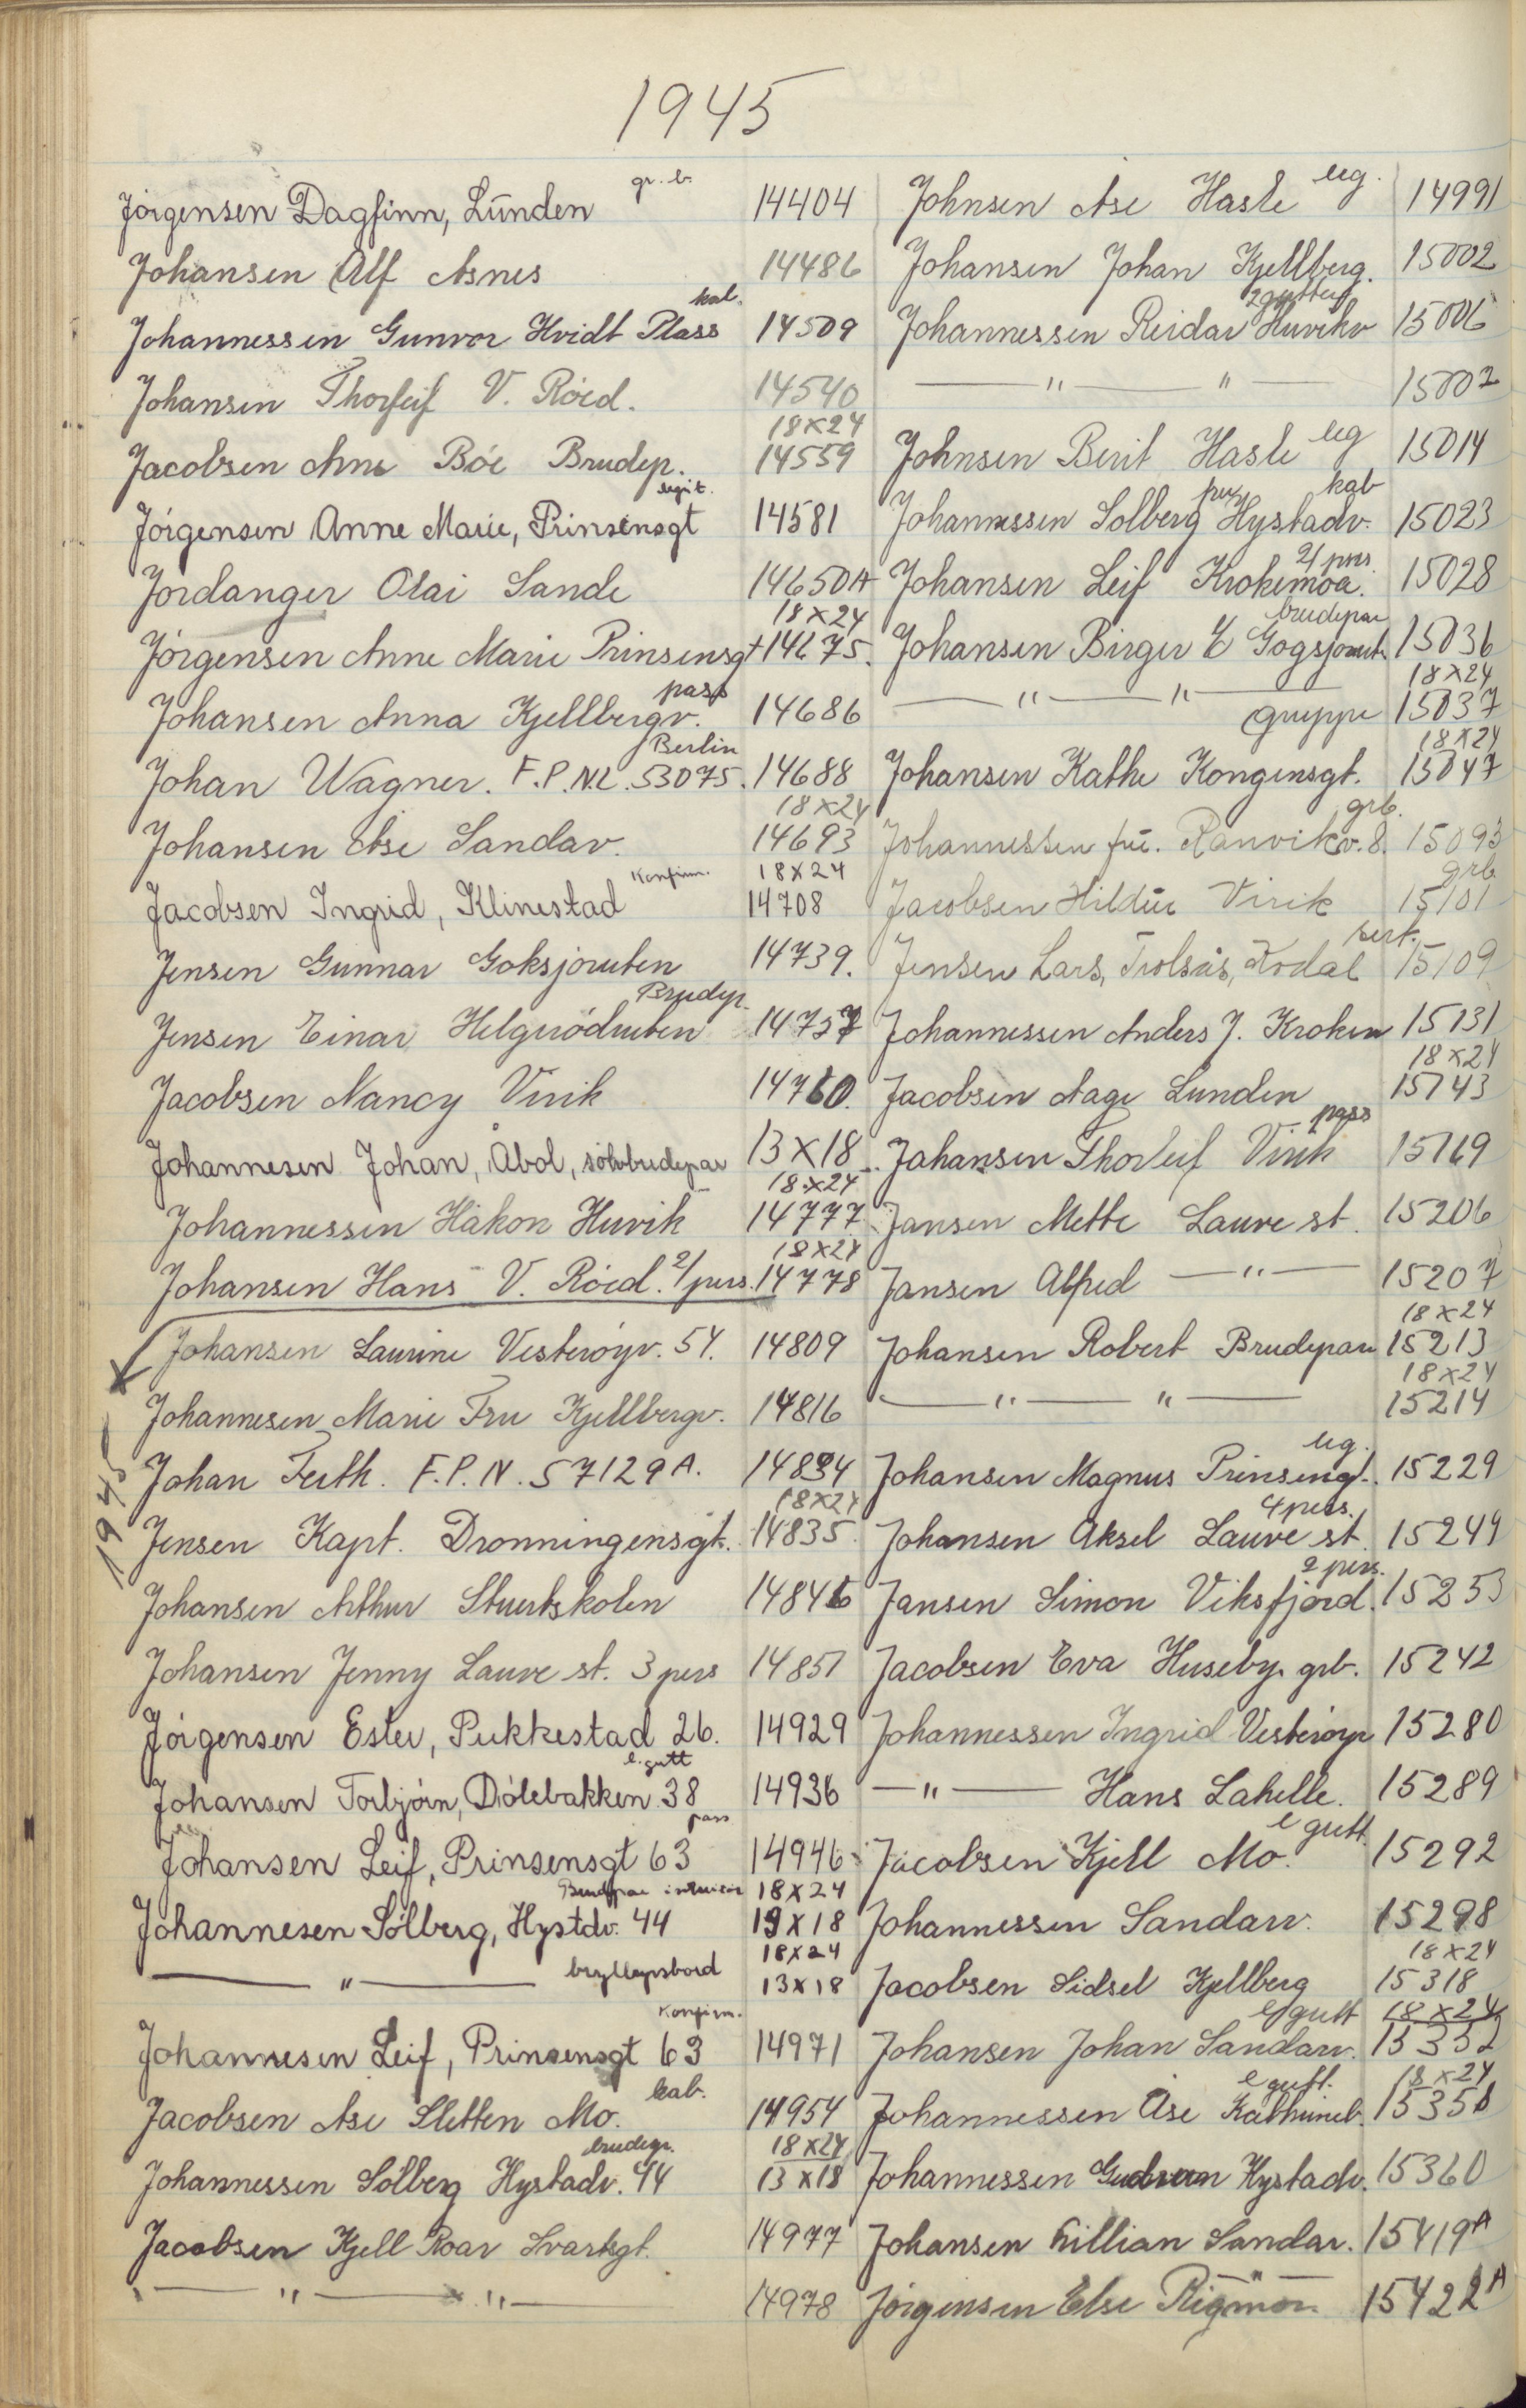 1945
gr. b.
Jörgensen Dagfinn, Lunden 14404
Johansen Alf Asnes 14486
kab.
Johannessen Gunvor Hvidt Plass 14509
Johansen Thorleif V. Röed. 14540
18x24
Jacobsen Arne Böe Brudep. 14559
legit.
Jörgensen Anne Marie, Prinsensgt 14581
Jordanger Olai Sande 14650A
18x24
Jörgensen Anne Marie Prinsensgt 14675.
pass
Johansen Anna Kjellbergv. 14686
Berlin
Johan Wagner. F.P.N.L. 53075. 14688
18x24
Johansen Åse Sandav. 14693
Konfirm. 18x24
Jacobsen Ingrid, Klinestad 14708
Jensen Gunnar Goksjöruten 14739.
Brudep.
Jensen Einar Helgerödruten 14757
Jacobsen Nancy Virik 14760.
Johannesen Johan, Åbol, sölvbrudepar 13x18
18x24
Johannessen Håkon Huvik 14777
18x24
Johansen Hans V. Röed. 2/pers. 14778
Johansen Laurine Vesteröyv. 54. 14809
Johannesen Marie Fru Kjellbergv. 14816
1945
Johan Feith. F.P.N. 57129A. 14834
18x24
Jensen Kapt. Dronningensgt. 14835.
Johansen Arthur Stuertskolen 14846
Johansen Jenny Lauve st. 3 pers 14851
Jörgensen Ester, Pukkestad 26. 14929
l. gutt
Johansen Torbjörn, Dölebakken 38 14936
pass
Johansen Leif, Prinsensgt 63 14946
Brudepar 18x24
Johannesen Sölberg, Hystdv. 44 13x18
18x24
" bryllupsbord 13x18
Konfirm.
Johannesen Leif, Prinsensgt 63 14971
kab.
Jacobsen Åse Sletten Mo. 14954
brudep. 18x24
Johannessen Solberg Hystadv. 44 13x18
Jacobsen Kjell Roar Svartsgt. 14977
" " 14978
leg.
Johnsen Åse Hasle 14991
Johansen Johan Kjellberg. 15002
2 gutter
Johannessen Reidar Huvikv 15006
" " 15002
leg
Johnsen Berit Hasle 15014
kab
Johannessen Solberg Hystadv. 15023
2/ pers.
Johansen Leif Krokemoa. 15028
brudepar
Johansen Birger E Gogsjorut. 15036
18x24
" " gruppe 15037
18x24
Johansen Kathe Kongensgt. 15047
grb.
Johannessen fru. Ranvikv. 8. 15093
grb
Jacobsen Hildur Virik 15101
sert.
Jensen Lars, Trolsås, Kodal 15109
Johannessen Anders J. Kroken 15131
18x24
Jacobsen Aage Lunden 15143
pass
Johansen Thorleif Virik 15169
Jansen Mette Lauve st. 15206
Jansen Alfred " 15207
18x24
Johansen Robert Brudepar 15213
18x24
" " 15214
leg.
Johansen Magnus Prinsensgt. 15229
4 pers.
Johansen Aksel Lauve st. 15249
2 pers.
Jansen Simon Viksfjord. 15253
Jacobsen Eva Huseby. grb. 15242
Johannessen Ingrid Vesteröyv 15280
" Hans Lahelle. 15289
l gutt
Jacobsen Kjell Mo. 15292
Johannessen Sandarv. 15298
18x24
Jacobsen Sidsel Kjellberg 15318
l gutt 18x24
Johansen Johan Sandarv. 15332
l gutt. 18x24
Johannessen Åse 15358
Johannessen Gudrun Hystadv. 15360
Johansen Lillian Sandar. 15419A
Jörgensen Else Rigmor 15422A